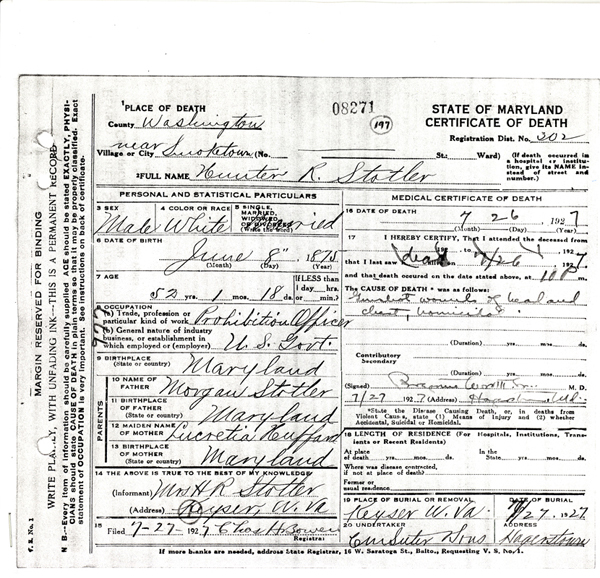 MARGIN RESERVED FOR BINDING
WRITE PLAINLY, WITH UNFADING INK—THIS IS A PERMANENT RECORD
N. B.—Every item of information should be carefully supplied. AGE should be stated EXACTLY, PHYSI-
CIANS should state CAUSE OF DEATH in plain terms so that it may be properly classified. Exact
statement of OCCUPATION is very important. See instructions on back of certificate.
V. S. No. 1
1 PLACE OF DEATH
County Washington
near
Village or City Smoketown (No.
St.; Ward)
2 FULL NAME Hunter R. Stotler
08271
197
STATE OF MARYLAND
CERTIFICATE OF DEATH
Registration Dist. No. 302
(If death occurred in
a hospital or institu-
tion, give its NAME in-
stead of street and
number.)
PERSONAL AND STATISTICAL PARTICULARS
3 SEX
Male
4 COLOR OR RACE
White
5 SINGLE,
MARRIED,
WIDOWED,
OR DIVORCED
(Write the word)
6 DATE OF BIRTH
June 8" 1875
(Month) (Day) (Year)
7 AGE
52 yrs. 1 mos. 18 ds.
If LESS than
1 day, hrs.
or min.?
8 OCCUPATION
(a) Trade, profession or
particular kind of work Prohibition Officer
(b) General nature of industry
business, or establishment in
which employed (or employer) U.S. Govt.
9 BIRTHPLACE
(State or country) Maryland
PARENTS
10 NAME OF
FATHER Morgan Stotler
11 BIRTHPLACE
OF FATHER
(State or country) Maryland
12 MAIDEN NAME
OF MOTHER Lucretia Huffard
13 BIRTHPLACE
OF MOTHER
(State or country) Maryland
14 THE ABOVE IS TRUE TO THE BEST OF MY KNOWLEDGE
(Informant) Mrs H R Stotler
(Address) Keyser, W. Va
15
Filed 7-27- 1927 Chas H. Bower
Registrar
MEDICAL CERTIFICATE OF DEATH
16 DATE OF DEATH
7 26, 1927
(Month) (Day) (Year)
17 I HEREBY CERTIFY, That I attended the deceased from
, 192 , to , 192
that I last saw dead on 7/26, 1927.
and that death occurred on the date stated above, at 10 m.
The CAUSE OF DEATH * was as follows:
Gunshot wounds of head and
chest, homicidal
(Duration) yrs. mos. ds.
Contributory
Secondary
(Duration) yrs. mos. ds.
(Signed) M. D.
7/27, 1927 (Address)
*State the Disease Causing Death, or, in deaths from
Violent Causes, state (1) Means of Injury and (2) whether
Accidental, Suicidal or Homicidal.
18 LENGTH OF RESIDENCE (For Hospitals, Institutions, Trans-
ients or Recent Residents)
At place
of death yrs. mos. ds.
In the
State, yrs. mos. ds.
Where was disease contracted,
if not at place of death?
Former or
usual residence
19 PLACE OF BURIAL OR REMOVAL
Keyser W. Va.
DATE OF BURIAL
7/27, 1927.
20 UNDERTAKER
C M Suter Sons
ADDRESS
Hagerstown
If more blanks are needed, address State Registrar, 16 W. Saratoga St., Balto., Requesting V. S. No. 1.